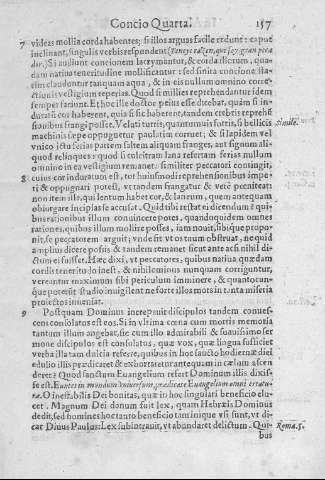 Concio Quarta. 157
7 videas mollia corda habentes; si illos arguas facile cedunt: caput
inclinant, singulis verbis respondent
dum.) Si audiunt concionem lacrymantur, & corda
dam nativa teneritudine mollificantur: sed finita concione ita
sim clauduntur tanquam aqua, & in eis nullum omnino corre-
ctionis vestigium reperias. Quod si millies reprehendantur idem
semper fariunt. Et hoc ille doctor peius esse dicebat, quàm si in-
duratũ cor haberent, quia si sic haberent, tandem crebris reprehẽ
sionibus frangi posset. Veluti turris, quãtumvis fortis, si bellicis
machinis sæpe oppugnetur paulatim corruet; & si lapidem vel
unico ictu ferias partem saltem aliquam franges, aut signum ali-
quod relinques: quod si culcitram lana refertam ferias nullum
omnino in ea vestigium remanet. similiter peccatori consingit,
8 cuius cor induratum est, tot huiusmodi reprehensionibus impe-
ti & oppugnari potest, ut tandem frangatur & verè pœniteat:
non item ille, qui lentum habet cor, & laneum, quem antequam
obiurgare incipias se accusat. Quid tibi restat ei dicendum? qui-
bus rationibus illum convincere potes, quandoquidem omnes
rationes, quibus illum mollire posses, iam novit, sibique propo-
nit, se peccatorem arguit; unde fit ut totum obstruat, nequid
amplius dicere possis & tandem remanet sicut ante ac si nihil di-
ctum ei fuisset. Hæc dixi, ut peccatores, quibus nativa quædam
cordis teneritudo inest, & nihilominus nunquam corriguntur,
vereantur maximum sibi periculum imminere, & quantocun-
que potuerint studio invigilent ne forte illos mors in tanta miseria
proiectos inveniat.
9 Postquam Dominus increpuit discipulos tandem conver-
sus consolatus est eos. Si in ultima cœna cum mortis memoria
tantum illum angebat, sic cum illo admirabili & suavissimo ser
mone discipulos est consolatus, quæ vox, quæ lingua sufficiet
verba illa tam dulcia referre, quibus in hoc sancto hodiernæ diei
edulio illis prædicaret & exhortaretur antequam in cælum ascen
deret? Quod sanctum Euangelium refert Dominum illis dixis-
se est. Euntes in mundum universum, prædicate Euangelium omni creatu-
ræ. O inestibilis Dei bonitas, quæ in hoc singulari beneficio elu-
cet. Magnum Dei donum fuit lex, quam Hebræis Dominus
dedit, sed homines hoc tanto beneficio tam inique usi sunt, ut di-
cat Divus Paulus: Lex subintravit, ut abundaret delictum. Qui-
bus
Simile.
Roma. 5.